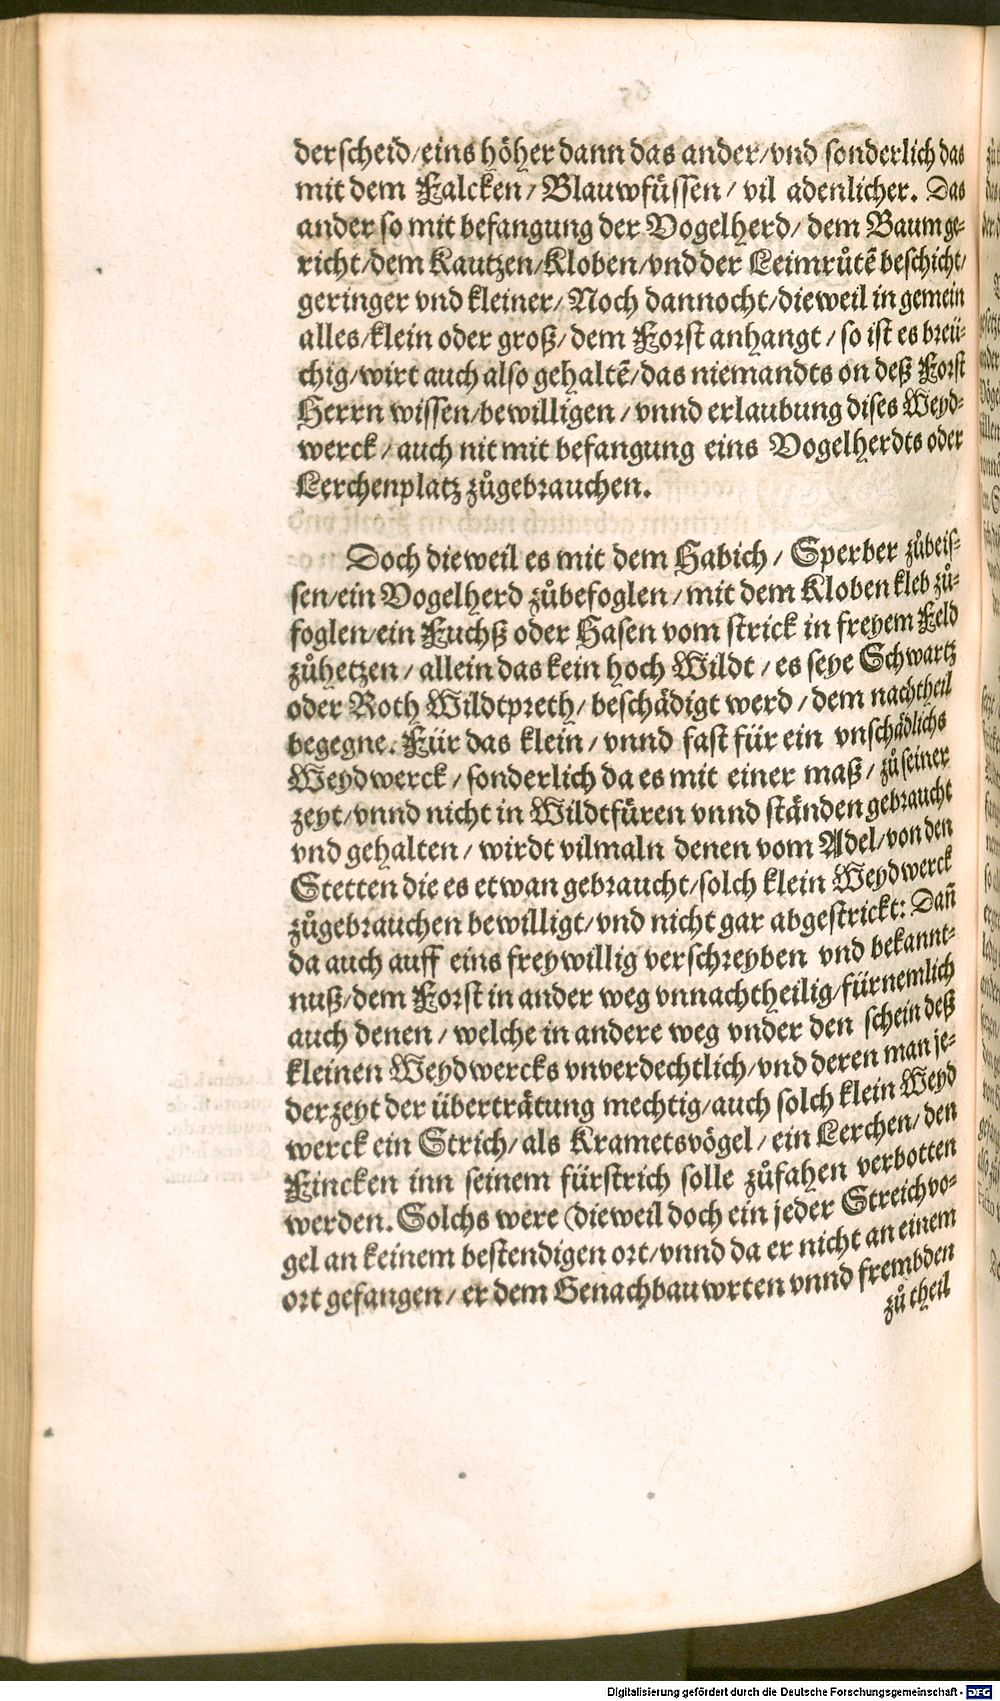 derscheid/eins höher dann das ander/vnd sonderlich das
mit dem Falcken/Blauwfüssen/ vil adenlicher. Das
ander so mit befangung der Vogelherd/ dem Baumge-
richt/dem Kautzen/Kloben/vnd der Leimrůtẽ beschicht/
geringer vnd kleiner/Noch dannocht/dieweil in gemein
alles/klein oder groß/dem Forst anhangt/so ist es breü-
chig/wirt auch also gehaltẽ/das niemandts on deß Forst
Herrn wissen/bewilligen/vnnd erlaubung dises Weyd-
werck/auch nit mit befangung eins Vogelherdts oder
Lerchenplatz zůgebrauchen.
Doch dieweil es mit dem Habich/Sperber zůbeis-
sen/ein Vogelherd zůbefoglen/mit dem Kloben kleb zů-
foglen/ein Fuchß oder Hasen vom strick in freyem Feld
zůhetzen/allein das kein hoch Wildt/es seye Schwartz
oder Roth Wildtpreth/beschädigt werd/dem nachtheil
begegne. Für das klein/vnnd fast für ein vnschädlichs
Weydwerck/sonderlich da es mit einer maß/zů seiner
zeyt/vnnd nicht in Wildtfüren vnnd ständen gebraucht
vnd gehalten/wirdt vilmaln denen vom Adel/von den
Stetten die es etwan gebraucht/solch klein Weydwerck
zůgebrauchen bewilligt/vnd nicht gar abgestrickt: Dañ
da auch auff eins freywillig verschreyben vnd bekannt-
nuß/dem Forst in ander weg vnnachtheilig/fürnemlich
auch denen/welche in andere weg vnder den schein deß
kleinen Weydwercks vnverdechtlich/vnd deren man je-
derzeyt der überträtung mechtig/auch solch klein Weyd
werck ein Strich/als Krametsvögel/ein Lerchen/den
Fincken inn seinem fürstrich solle zůfahen verbotten
werden. Solchs were (dieweil doch ein jeder Streichvo-
gel an keinem bestendigen ort/vnnd da er nicht an einem
ort gefangen/er dem Genachbauwrten vnnd frembden
zů theil
Digitalisierung gefördert durch die Deutsche Forschungsgemeinschaft - DFG